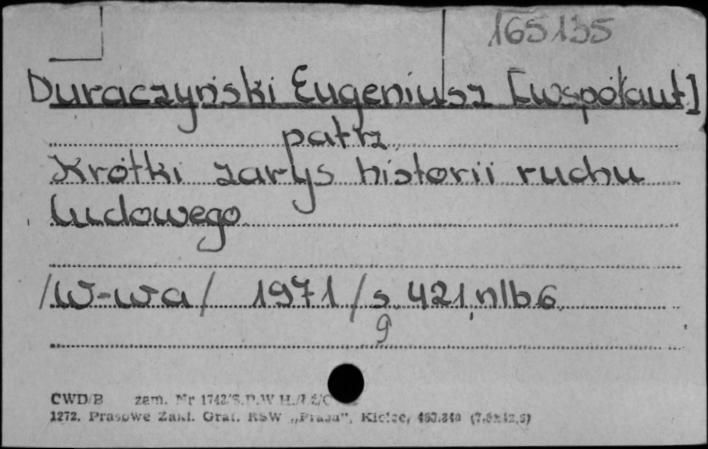 165135
Duraczyński Eugeniusz [współaut]
patrz
Krótki zarys historii ruchu
ludowego
/W-wa/ 1971/s. 421, nlb 6
9
CWD/B zam. Nr
1272. Prasowe Zakł. Graf. RSW „Prasa", Kielce,